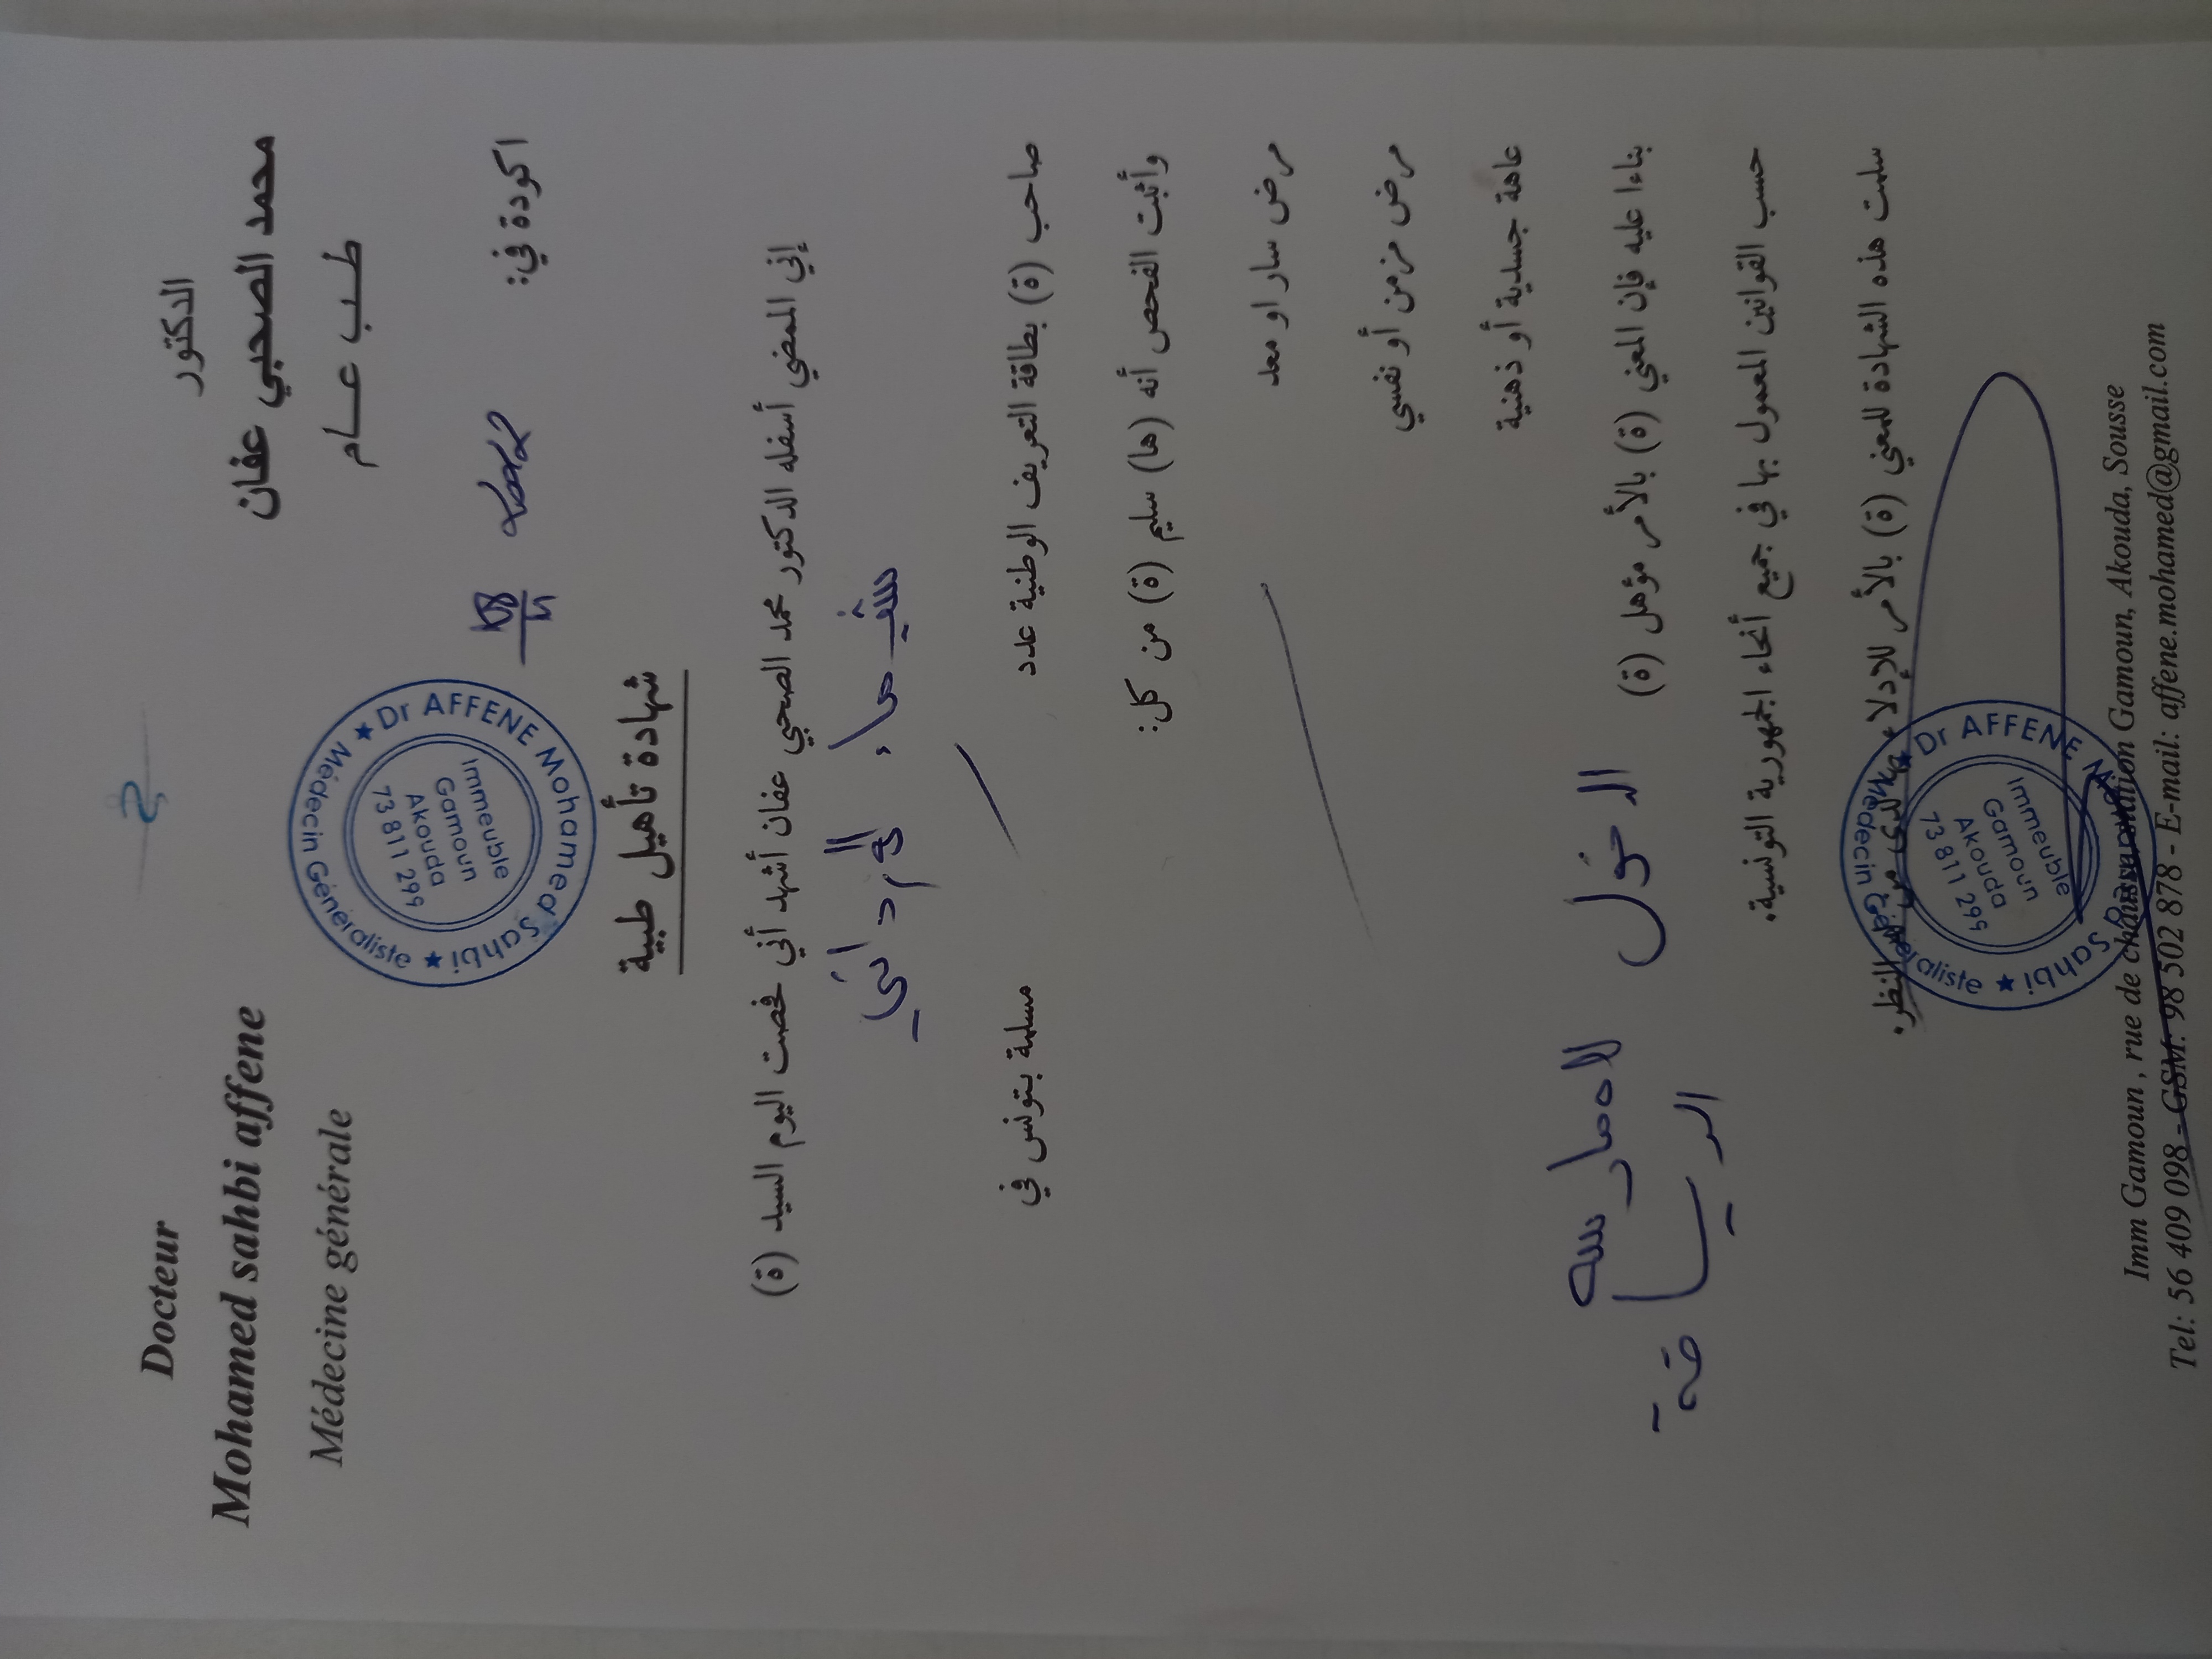 Docteur
الدكتور
Mohamed sahbi affene
محمد الصحبي عفان
Médecine générale
طــب عــــام
Dr AFFENE Mohamed Sahbi
Médecin Généraliste
Immeuble
Gamoun
Akouda
73 811 299
اكودة في:
شهادة تأهيل طبية
إني الممضي أسفله الدكتور محمد الصحبي عفان أشهد أني فحصت اليوم السيد (ة)
صاحب (ة) بطاقة التعريف الوطنية عدد مسلمة بتونس في
وأثبت الفحص أنه (ها) سليم (ة) من كل:
مرض سار او معد
مرض مزمن أو نفسي
عاهة جسدية أو ذهنية
بناءا عليه فإن المعني (ة) بالأمر مؤهل (ة)
الرياضة
حسب القوانين المعمول بها في جميع أنحاء الجمهورية التونسية.
سلمت هذه الشهادة للمعني (ة) بالأمر للإدلاء بها لدى من النظر.
Dr AFFENE Sahbi
Médecin Généraliste
Immeuble
Gamoun
Akouda
73 811 299
Imm Gamoun , rue de Gamoun, Akouda, Sousse
Tel: 56 409 098 - GSM: 98 502 878 - E-mail: affene.mohamed@gmail.com